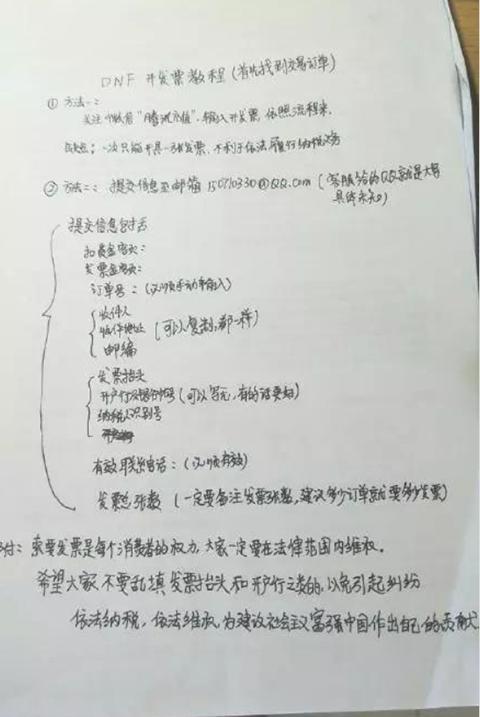 DNF 开发票教程(首先找到交易订单)
① 方法一:
关注微信"腾讯充值",输入开发票,依照流程来.
缺点:一次只能开具一张发票,不利于依法履行纳税义务
② 方法二:提交信息至邮箱 150710330@QQ.com (客服给的QQ就是大写
具体未知)
提交信息包括
扣费金额:
发票金额:
订单号:(必须手动输入)
收件人
收件地址 (可以复制,都一样)
邮编
发票抬头
开户行及银行账号(可以写无,有的话要如)
纳税人识别号
有效联系电话:(必须有效)
发票总张数 (一定要备注发票张数,建议多少订单就要多少发票)
附:索要发票是每个消费者的权力,大家一定要在法律范围内维权.
希望大家不要乱填发票抬头和开户行之类的,以免引起纠纷
依法纳税,依法维权,为建设社会主义富强中国作出自己的贡献